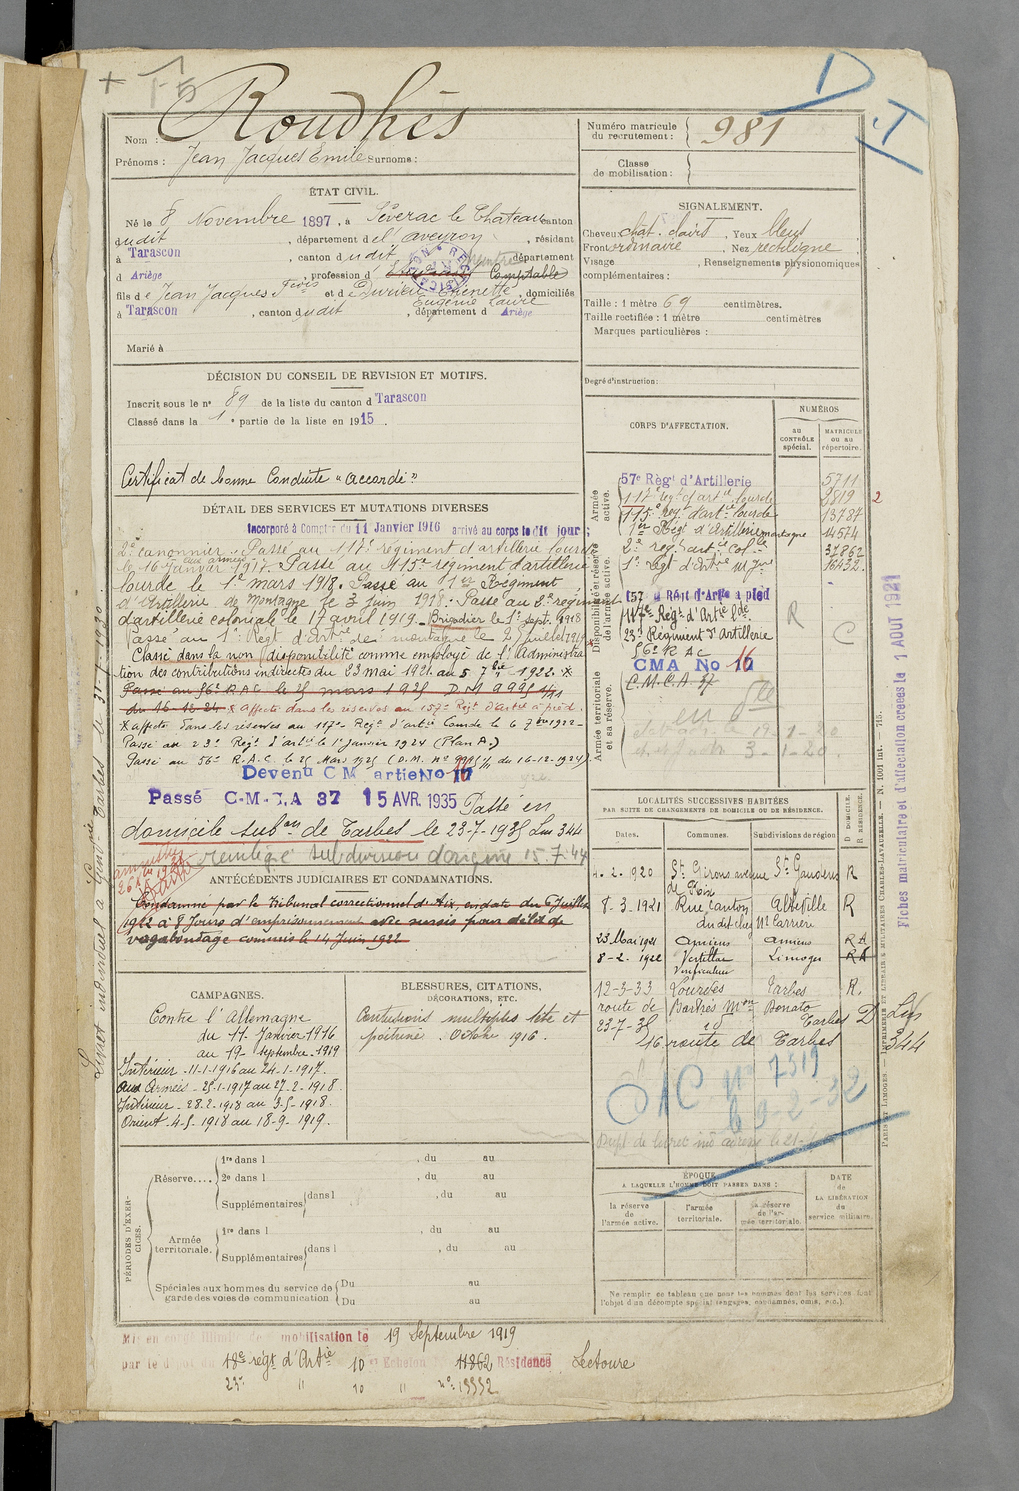 Roudhès
Nom :
Prénoms : Jean Jacques Emile Surnoms :
Numéro matricule
du recrutement : 981
Classe
de mobilisation :
ÉTAT CIVIL.
Né le 8 Novembre 1897, à Séverac le Chateau canton
dudit, département de l'aveyron, résidant
à Tarascon, canton dudit, département
d Ariège, profession d' Comptable
fils de Jean Jacques et de Durieu, domiciliés
Eugénie Laure
à Tarascon, canton dudit, département d Ariège
Marié à
SIGNALEMENT.
Cheveux chat. clairs, Yeux bleus
Front ordinaire, Nez rectiligne
Visage, Renseignements physionomiques
complémentaires :
Taille : 1 mètre 69 centimètres.
Taille rectifiée : 1 mètre centimètres
Marques particulières :
Degré d'instruction :
DÉCISION DU CONSEIL DE REVISION ET MOTIFS.
Inscrit sous le n° 89 de la liste du canton d Tarascon
Classé dans la 1e partie de la liste en 1915.
Certificat de bonne Conduite "accordé"
DÉTAIL DES SERVICES ET MUTATIONS DIVERSES
Incorporé à Compter du 11 Janvier 1916 arrivé au corps le dit jour :
2e canonnier. Passé au 117e régiment d'artillerie lourde
aux armées
le 16 Janvier 1917. Passé au 115e régiment d'artillerie
lourde le 1e mars 1918. Passé au 1er Régiment
d'Artillerie de Montagne le 3 Juin 1918. Passé au 2e régiment
d'artillerie coloniale le 17 avril 1919. Brigadier le 1e Sept. 1918
Passé au 1e Regt d'Artrie de montagne le 2 Juillet 1919
Classé dans la non disponibilité comme employé de l'Administra
tion des contributions indirectes du 23 mai 1921 au 5 7bre 1922. x
Passé au 56e R.A.C. le 25 mars 1925 D.M 9995 1/11
du 16-12-24. x affecté dans les réserves au 157e Regt d'Artie à pied.
x affecté dans les réserves au 117e Regt d'artie Lourde le 6 7bre 1922 -
Passé au 23e Regt d'artie le 1e Janvier 1924 (Plan A.)
Passé au 56e R.A.C. le 25 Mars 1925 (D.M. n° 9995 1/11 du 16-12-1924).
Devenu C M artie No 16
Passé C.M.C.A 37 15 AVR. 1935 Passé en
domicile subon de Tarbes le 23-7-1935 Lus 344
réintégré subdivision d'origine 15.7.44
ANTÉCÉDENTS JUDICIAIRES ET CONDAMNATIONS.
Condamné par le Tribunal correctionnel d'Aix, en date du 6 Juillet
1922 à 8 Jours d'emprisonnement avec sursis pour délit de
vagabondage commis le 14 Juin 1922
CAMPAGNES.
Contre l'Allemagne
du 11 Janvier 1916
au 19 Septembre 1919
Intérieur - 11-1-1916 au 24-1-1917.
Aux Armées - 25-1-1917 au 27-2-1918.
Intérieur - 28-2-1918 au 3-5-1918.
Orient 4-5-1918 au 18-9-1919.
BLESSURES, CITATIONS,
DÉCORATIONS, ETC.
Contusions multiples tête et
poitrine. Octobre 1916.
PÉRIODES D'EXERCICES.
Réserve....
1re dans l, du au
2e dans l, du au
Supplémentaires dans l, du au
Armée
territoriale.
1re dans l, du au
Supplémentaires dans l, du au
Spéciales aux hommes du service de
garde des voies de communication
Du au
Du au
CORPS D'AFFECTATION.
NUMÉROS
au
CONTRÔLE
spécial.
MATRICULE
ou au
répertoire.
Armée
active.
57e Régt d'Artillerie 5711
117e regt d'artie lourde 2819 2
115e regt d'artie lourde 13787
1er Regt d'Artillerie montagne 14574
2e regt art Colle 37862
1e regt d'Artrie Mgne 16432
Disponibilité et réserve
de l'armée active.
157e Régt d'Artie à pied
117e Regt d'Artie Lde
23e Régiment d'Artillerie
56e R A C
CMA No 16
C.M.C.A 37
R
C
Armée territoriale
et sa réserve.
LOCALITÉS SUCCESSIVES HABITÉES
PAR SUITE DE CHANGEMENTS DE DOMICILE OU DE RÉSIDENCE.
Dates. Communes. Subdivisions de région
D DOMICILE.
R RÉSIDENCE.
4.2.1920 St Girons avenue St Gaudens R
de Foix
8-3.1921 Rue Canton Abbeville R
du dit chez Mr Carrère
23 Mai 1921 Amiens Amiens R A
8-2.1922 Limoges R A
Vérificateur
12-3-33 Lourdes Tarbes R.
route de Bartrès Mon Bonato
23-7-35 id Tarbes D Lus
16 route de Tarbes 344
OAC n° 7519
ÉPOQUE
A LAQUELLE L'HOMME DOIT PASSER DANS :
la réserve
de
l'armée active.
l'armée
territoriale.
la réserve
de l'ar-
mée territoriale.
DATE
de
LA LIBÉRATION
du
service militaire.
Ne remplir ce tableau que pour les hommes dont les services font
l'objet d'un décompte spécial (engagés, condamnés, omis, etc.).
Mis en congé illimité de démobilisation le 19 Septembre 1919
par le dépôt du 18e régt d'Artie 10 e Echelon N 11862 Résidence Lectoure
23e " 10 " n° 13332
Fiches matriculaire et d'affectation créées le 1 AOUT 1921
PARIS ET LIMOGES. — IMPRIMERIE ET LIBRAIRIE MILITAIRES CHARLES-LAVAUZELLE. — N. 1001 int. — 715.